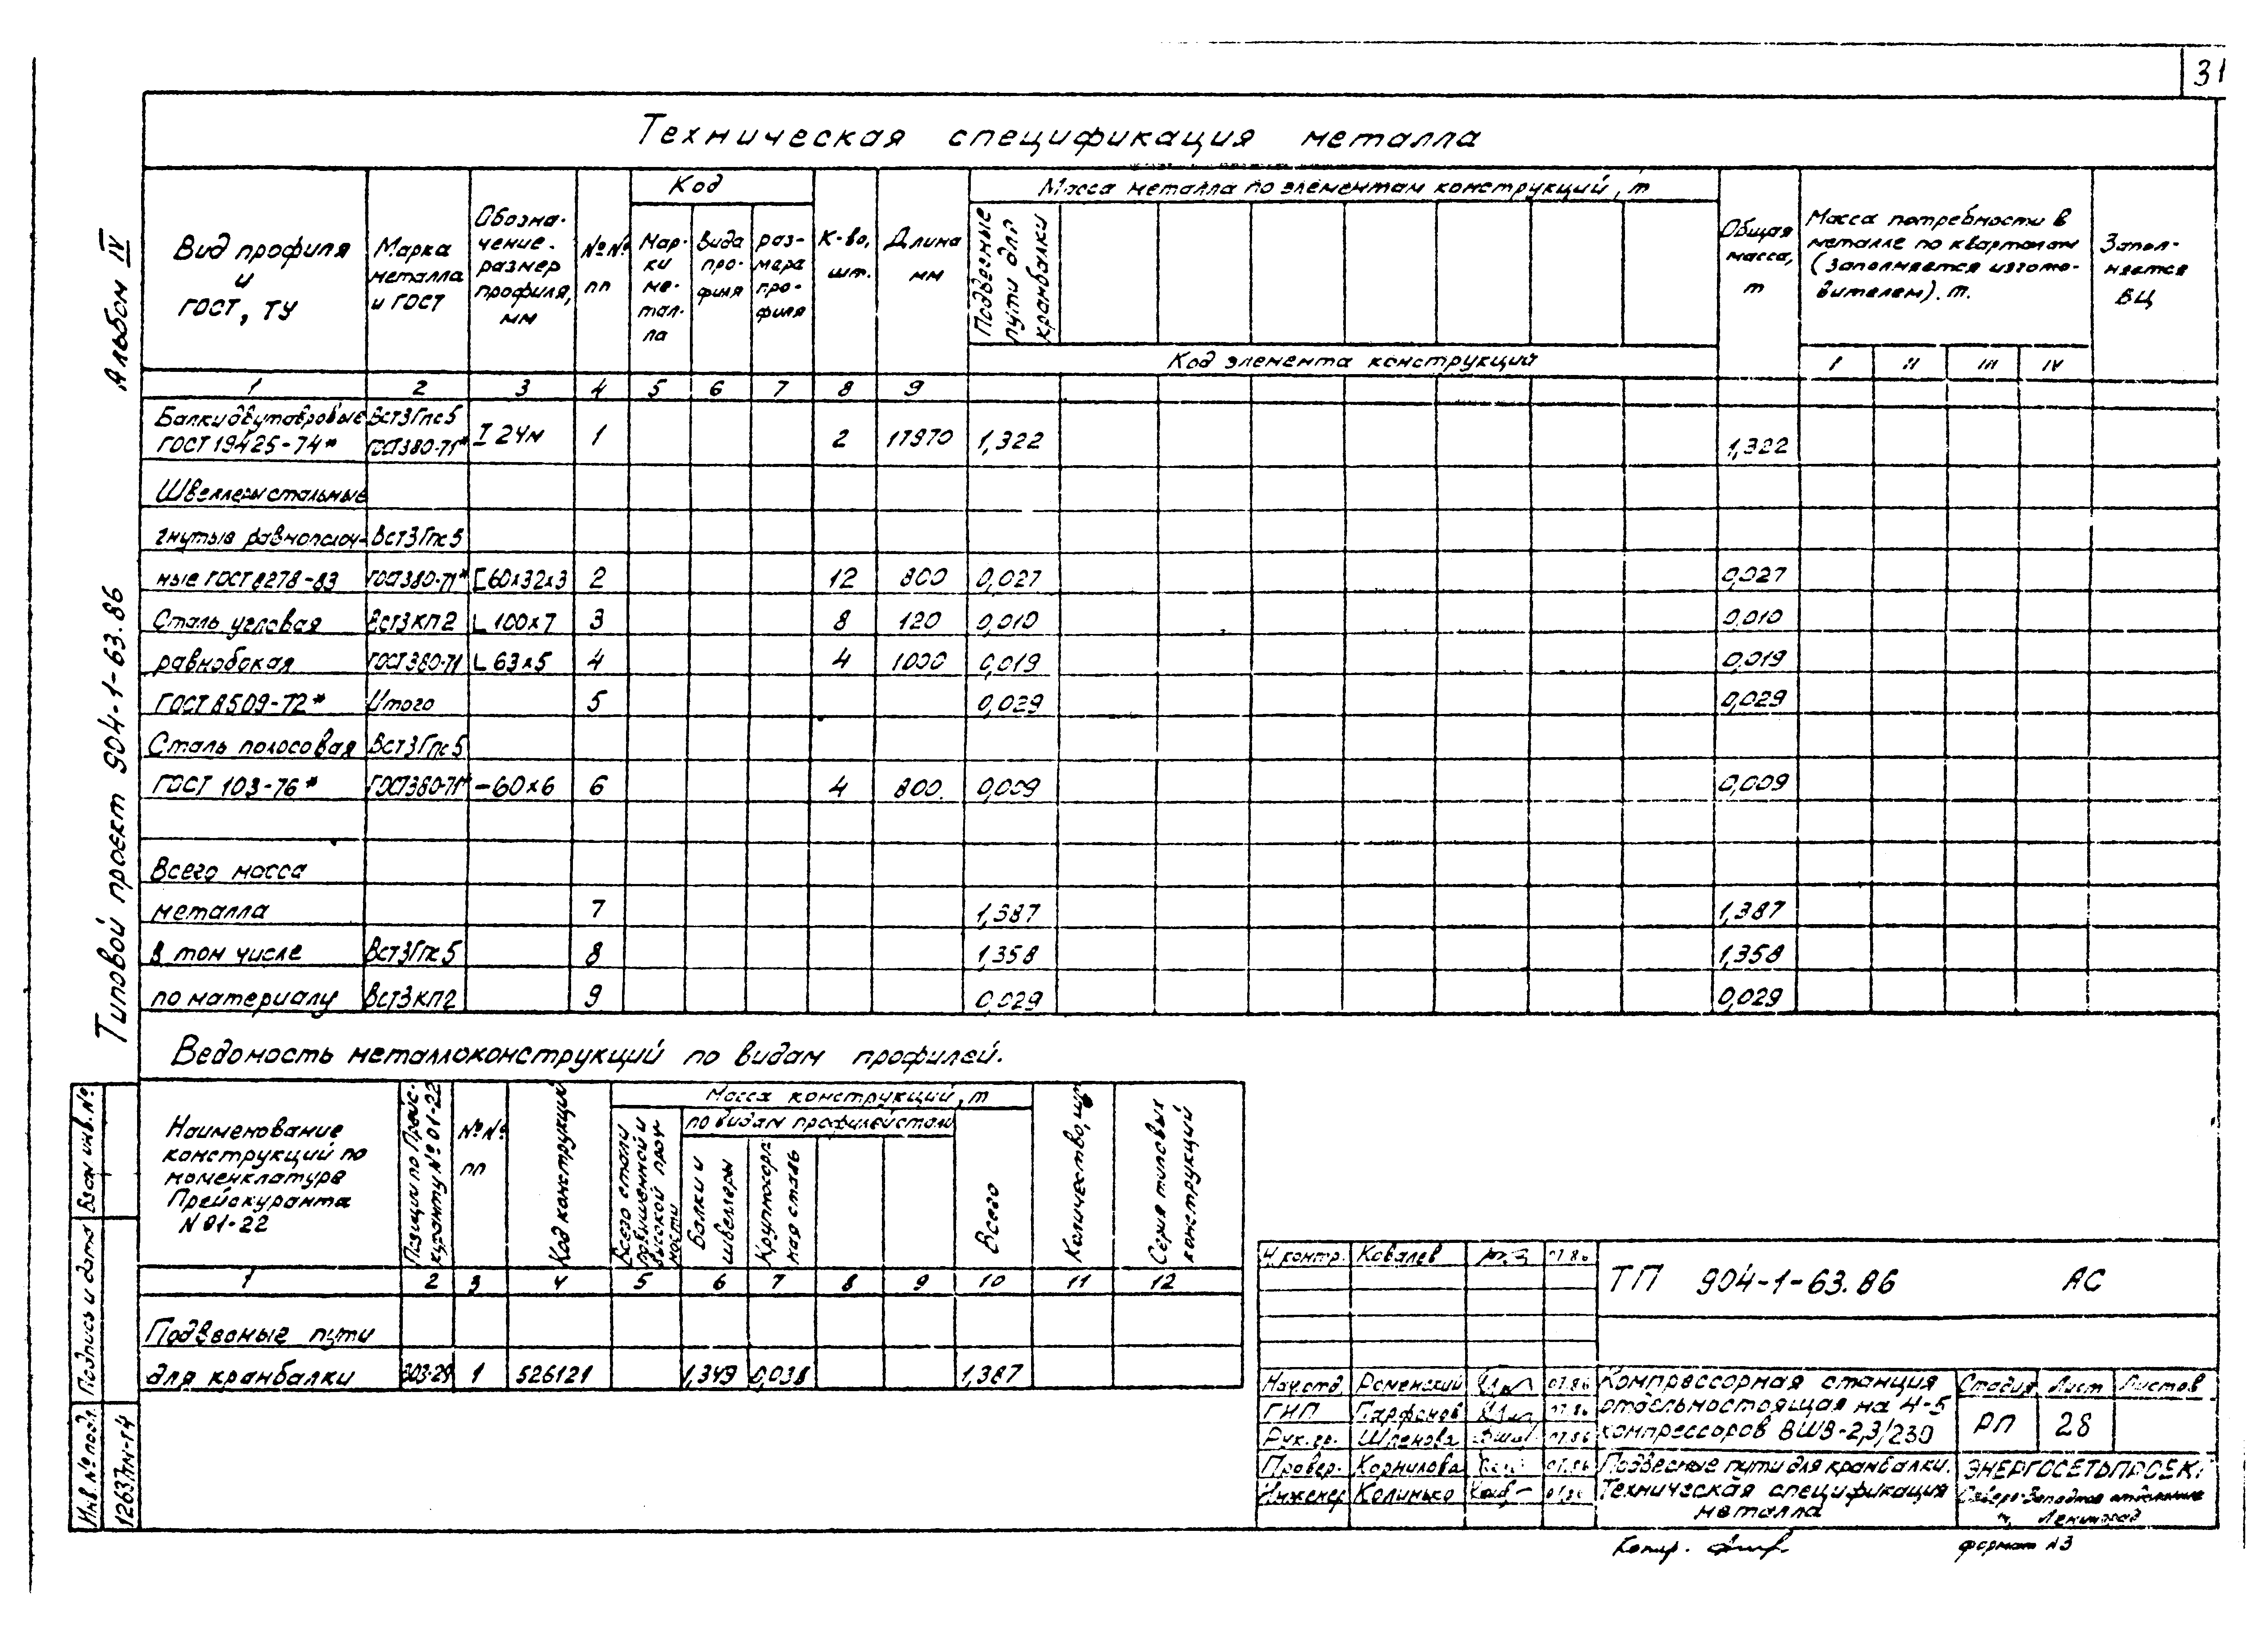 31
Техническая спецификация металла
Вид профиля и ГОСТ, ТУ
Марка металла и ГОСТ
Обозна-чение. размер профиля, мм
№№ пп
Код
Мар-ки ме-тал-ла
Вида про-филя
раз-мера про-филя
К-во, шт.
Длина мм
Масса металла по элементам конструкций, т
Подвесные пути для кранбалки
Код элемента конструкций
Общая масса, т
Масса потребности в металле по кварталам (заполняется изгото-вителем). т.
I II III IV
Запол-няется ВЦ
1 2 3 4 5 6 7 8 9
Балки двутавровые ВСт3Гпс5
ГОСТ 19425-74* ГОСТ380-71* I 24м 1 2 17970 1,322 1,322
Швеллеры стальные
гнутые равнополоч- ВСт3Гпс5
ные ГОСТ 8278-83 ГОСТ380-71* [60х32х3 2 12 800 0,027 0,027
Сталь угловая ВСт3кп2 L 100х7 3 8 120 0,010 0,010
равнобокая ГОСТ380-71 L 63х5 4 4 1000 0,019 0,019
ГОСТ 8509-72* Итого 5 0,029 0,029
Сталь полосовая ВСт3Гпс5
ГОСТ 103-76* ГОСТ380-71* -60х6 6 4 800 0,009 0,009
Всего масса
металла 7 1,387 1,387
в том числе ВСт3Гпс5 8 1,358 1,358
по материалу ВСт3кп2 9 0,029 0,029
Ведомость металлоконструкций по видам профилей.
Наименование
конструкций по
номенклатуре
Прейскуранта
N 01-22
Позиции по Прейс-куранту № 01-22
№№ пп
Код конструкции
Масса конструкций, т
Всего стали повышенной и высокой проч-ности
по видам профилей стали
Балки и швеллеры
Крупносорт-ная сталь
Всего
Количество, шт
Серия типовых конструкций
1 2 3 4 5 6 7 8 9 10 11 12
Подвесные пути
для кранбалки 1 526121 1,349 0,038 1,387
Альбом IV
Типовой проект 904-1-63.86
Взам инв. №
Подпись и дата
Инв. № подл.
12637тм-т4
Н. контр. Ковалев 07.86
ТП 904-1-63.86 АС
Нач.отд Роменский 07.86
ГИП Парфонов 07.86
Рук.гр. Шленова 07.86
Провер. Корнилова 07.86
Инженер Калинько 07.86
Компрессорная станция
отдельностоящая на 4-5
компрессоров ВШВ-2,3/230
Стадия Лист Листов
РП 28
Подвесные пути для кранбалки.
Техническая спецификация
металла
ЭНЕРГОСЕТЬПРОЕКТ
Северо-Западное отделение
Ленинград
Копир.
формат А3